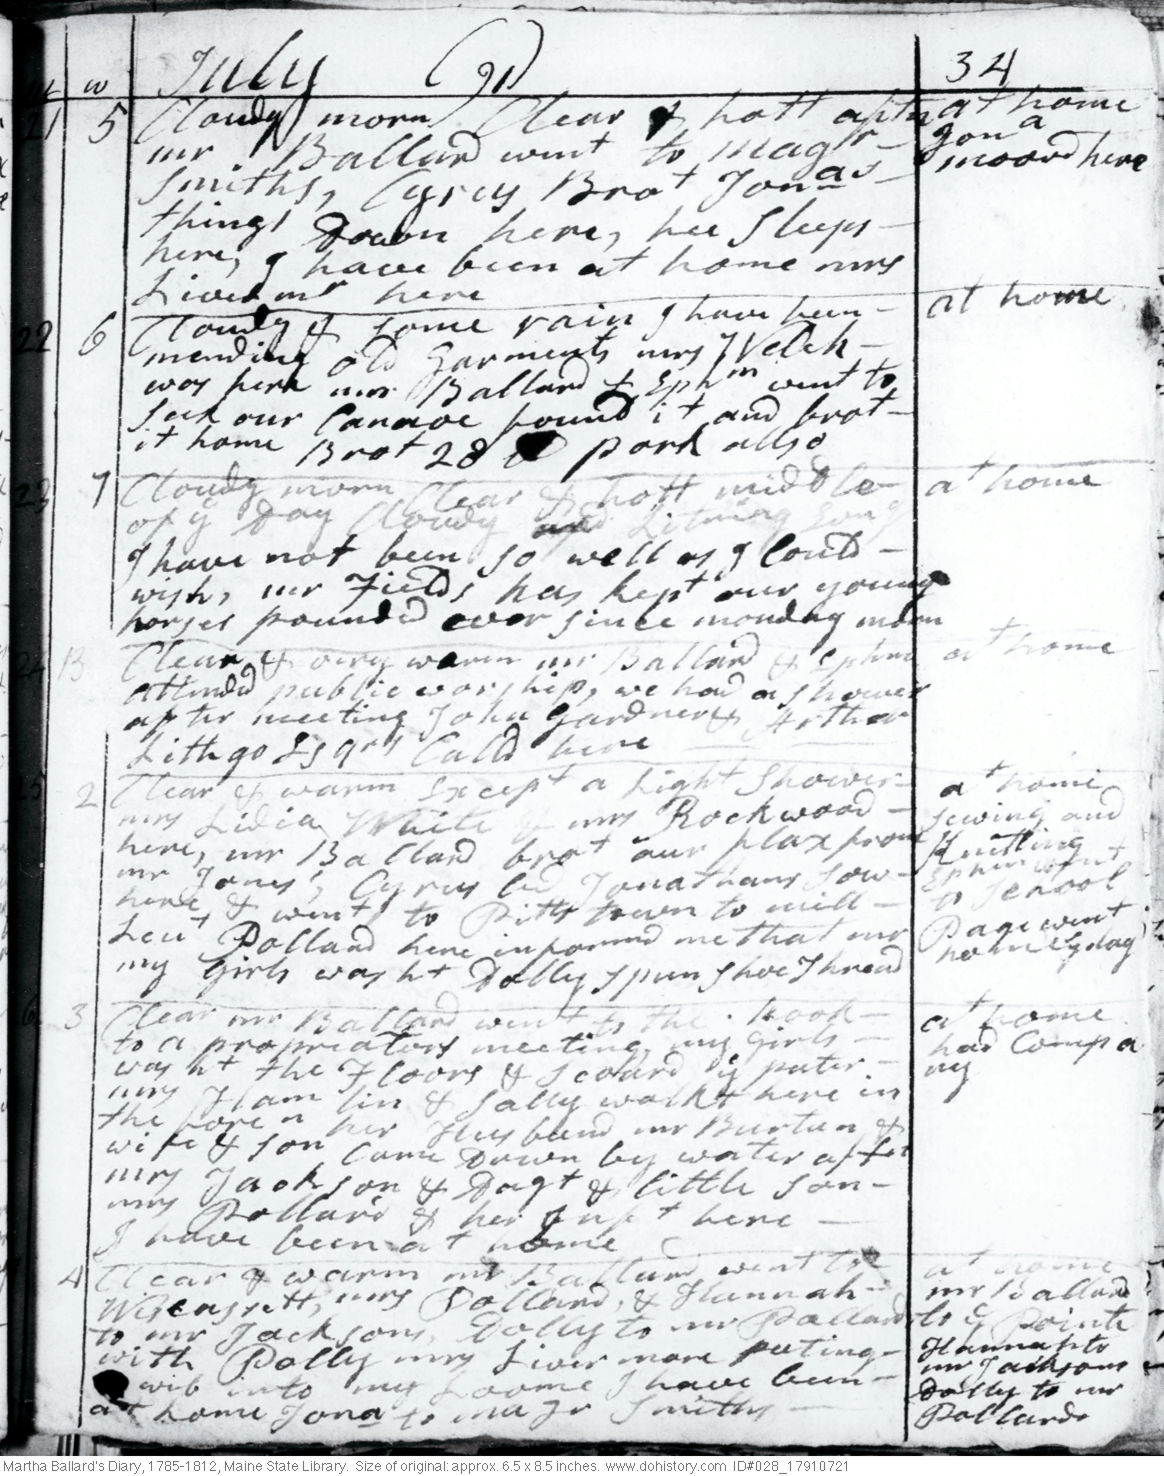 m w July (91) 34
21 5 Cloudy morn Clear & hott aftn at home
mr Ballard went to majr - Jona
Smiths, Cyrus Brot Jonas - moovd here
things Down here, hee sleeps -
here, I have been at home mrs
Livermr here
22 6 Cloudy & some rain I have been - at home
mending old Garments mrs Welch -
was here mr Ballard & Ephm went to
seek our Canaoe found it and brot -
it home Brot 28 pork allso
23 7 Cloudy morn Clear & hott middle - at home
of ye Day Cloudy Litning Eving
I have not been so well as I Could -
wish, mr Fields has kept our young
horses pounded ever since monday morn
24 B Clear & very warm mr Ballard & Ephm at home
attended public worship, we had a shower
after meeting John Gardner & Arthor
Lithgo Esqrs Calld here
25 2 Clear & warm Except a Light shower - at home
mrs Lidia White & mrs Rockwood - sewing and
here, mr Ballard brot our flax from Knitting
mr Jones', Cyrus led Jonathans sow - Ephm went
here & went to Pittstown to mill - to school
Leut Pollard here informd me that mr Page went
my Girls washt Dolly spun shoe Thread home ys day
6 3 Clear mr Ballard went to the Hook - at home
to a propriators meeting, my Girls - had Compa
washt the Floors & scourd ye puter - ny
mrs Hamlin & Sally walkt here in
the foren her Husband mr Burtun &
wife & son Came Down by water aftn
mrs Jackson & Dagt & little son -
mrs Pollard & her Inft here -
I have been at home
4 Clear & warm mr Ballard went to at home
Wiscassett, mrs Pollard, & Hannah - mr Ballard
to mr Jacksons, Dolly to mr Pollards to ye Pointe
with Polly mrs Livermore puting - Hannah to
wib into my Loome I have been - mr Jacksons
at home Jona to majr Smiths - Dolly to mr
Pollards
Martha Ballard's Diary, 1785-1812, Maine State Library. Size of original: approx. 6.5 x 8.5 inches. www.dohistory.com ID#028_17910721